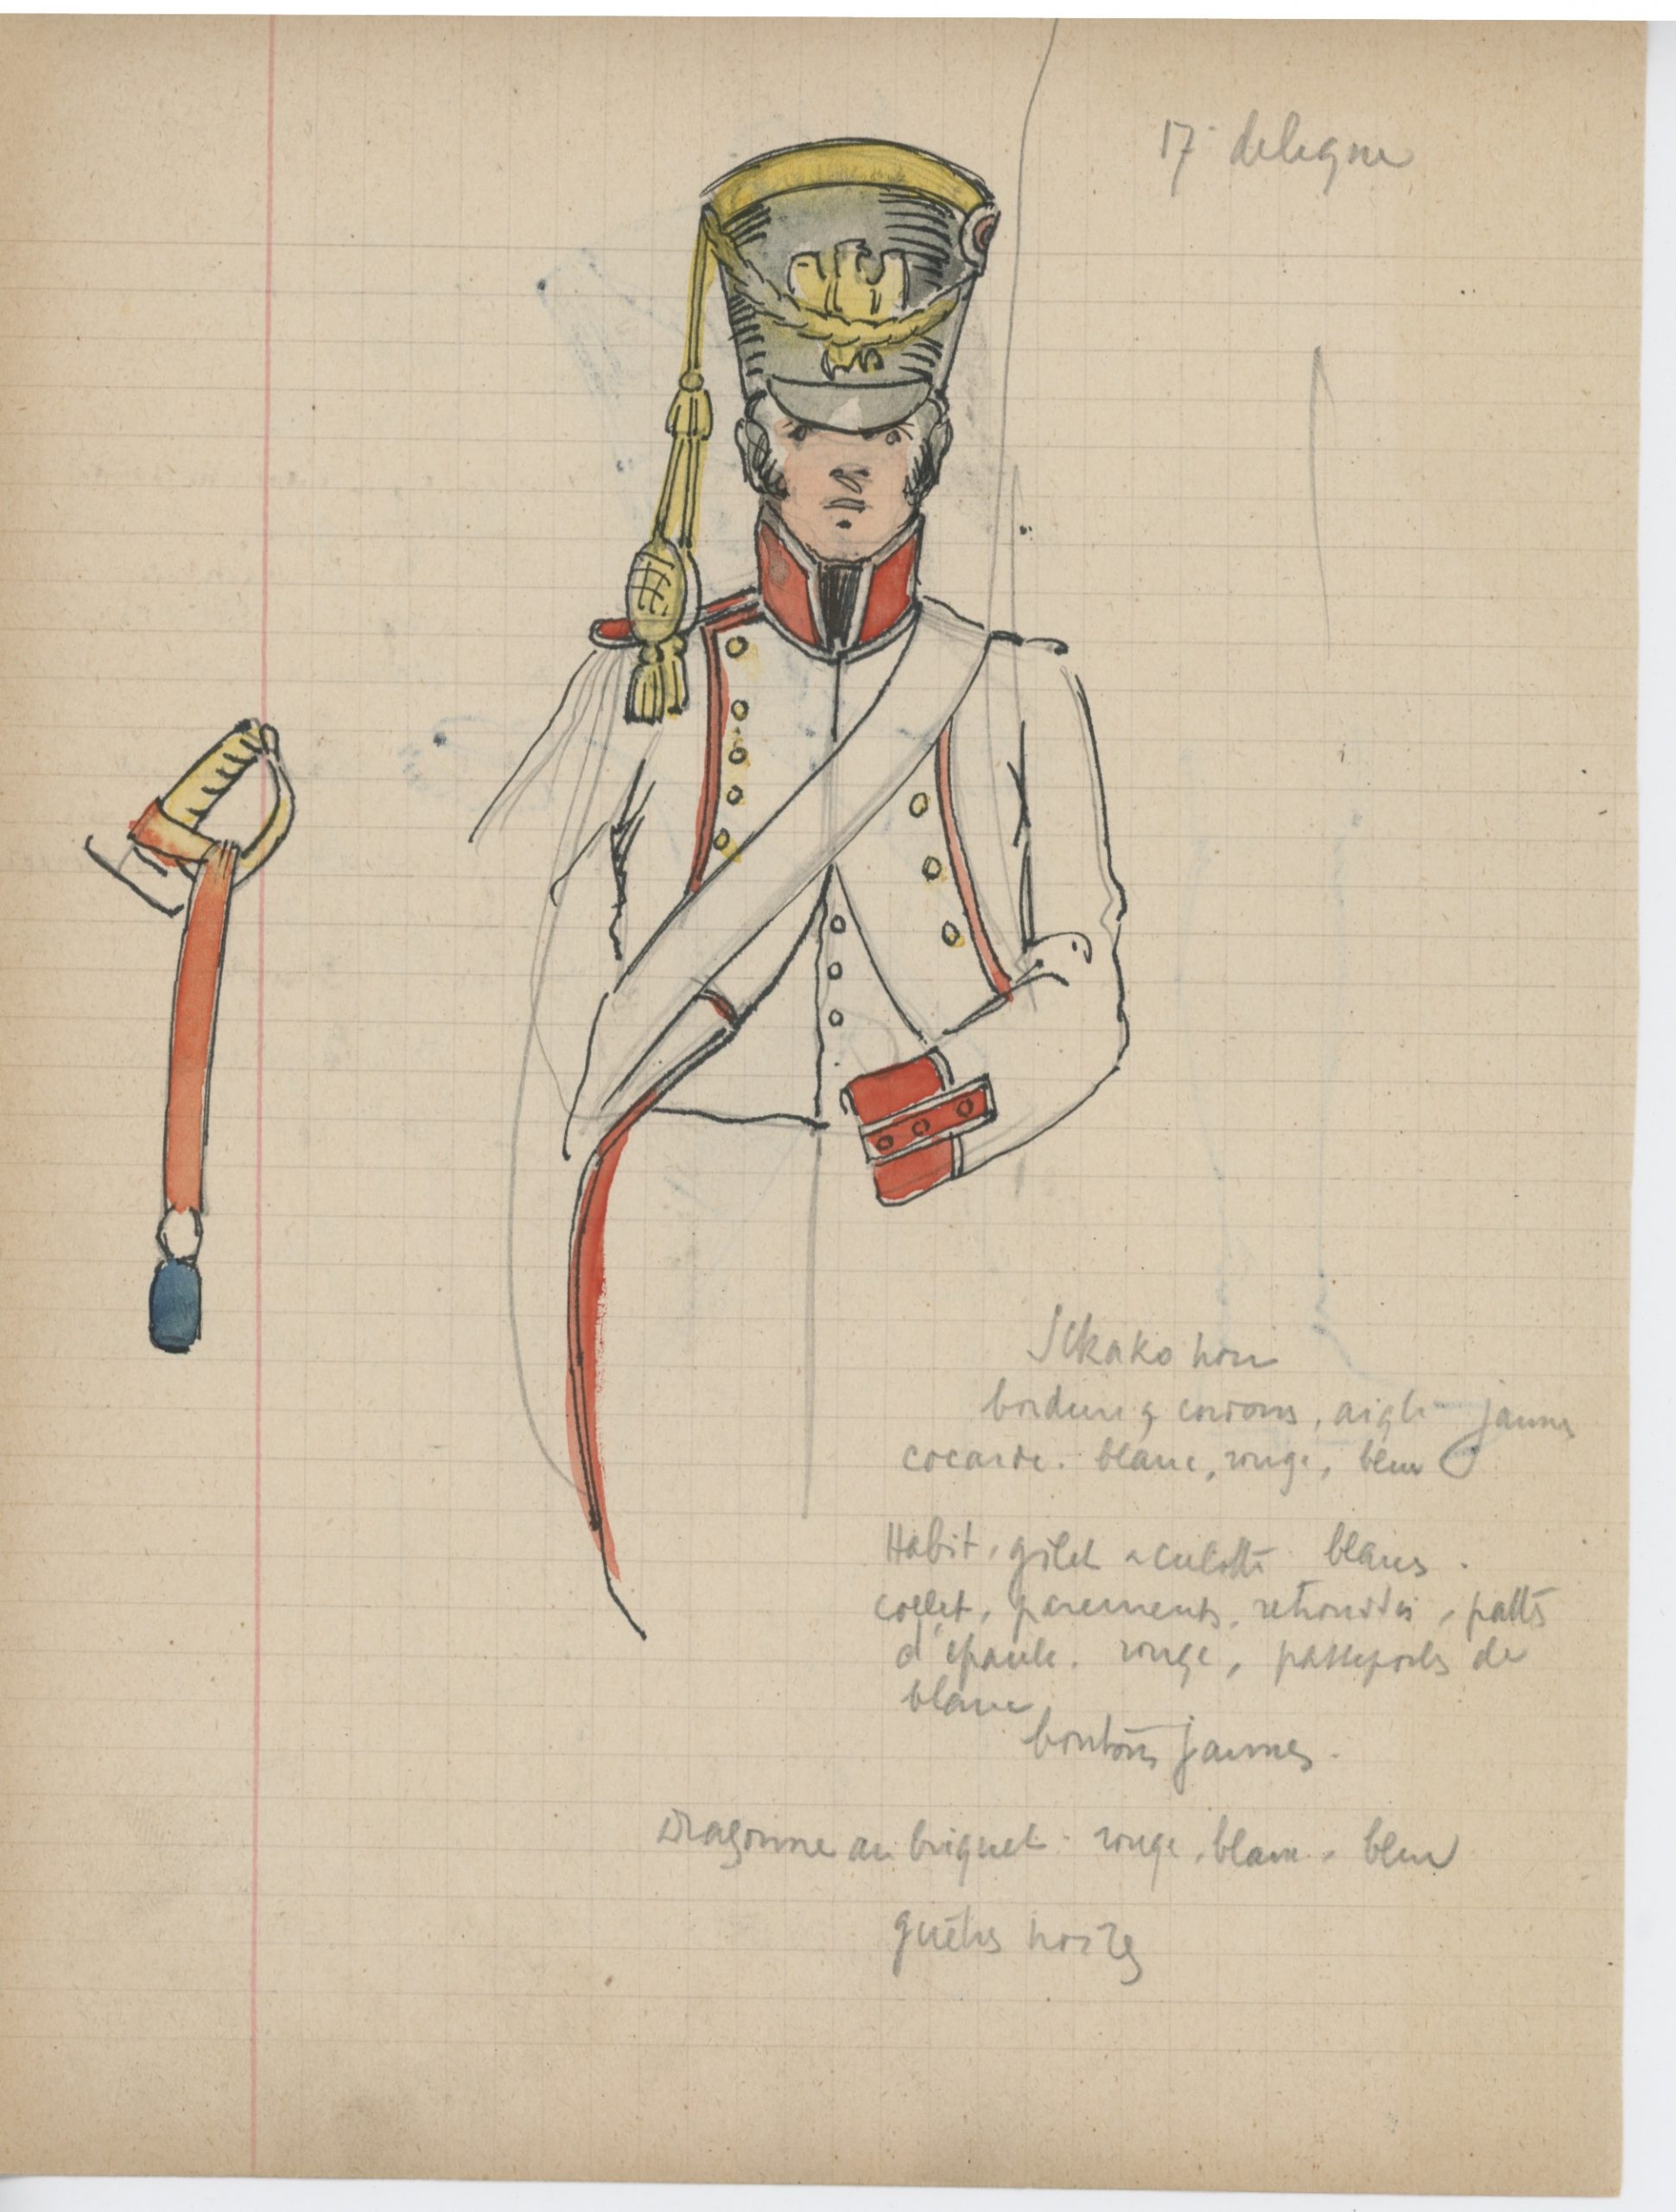 17 de ligne
Schako noir
bordure & cordons, aigle jaunes
cocarde. blanc, rouge, bleu
Habit, gilet & culotte blancs.
collet, parements, retroussis, pattes
d'épaule. rouge, passepoils de
blanc
boutons jaunes.
Dragonne au briquet. rouge, blanc, bleu
guêtres noires